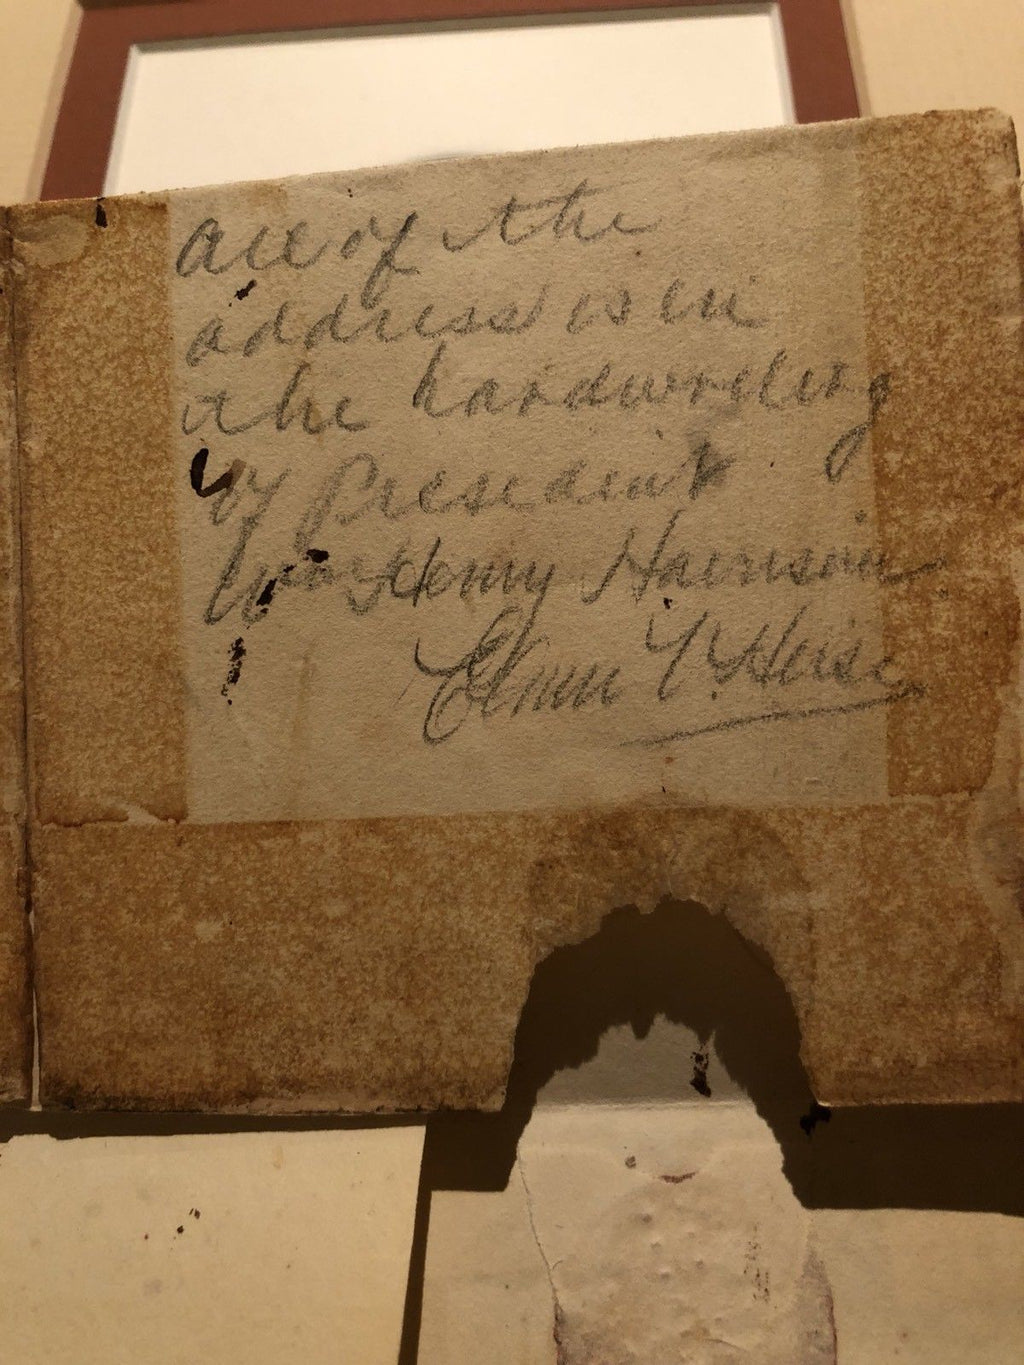 All of the
address is in
the handwriting
of President
Wm Henry Harrison
Elmer T. Heise